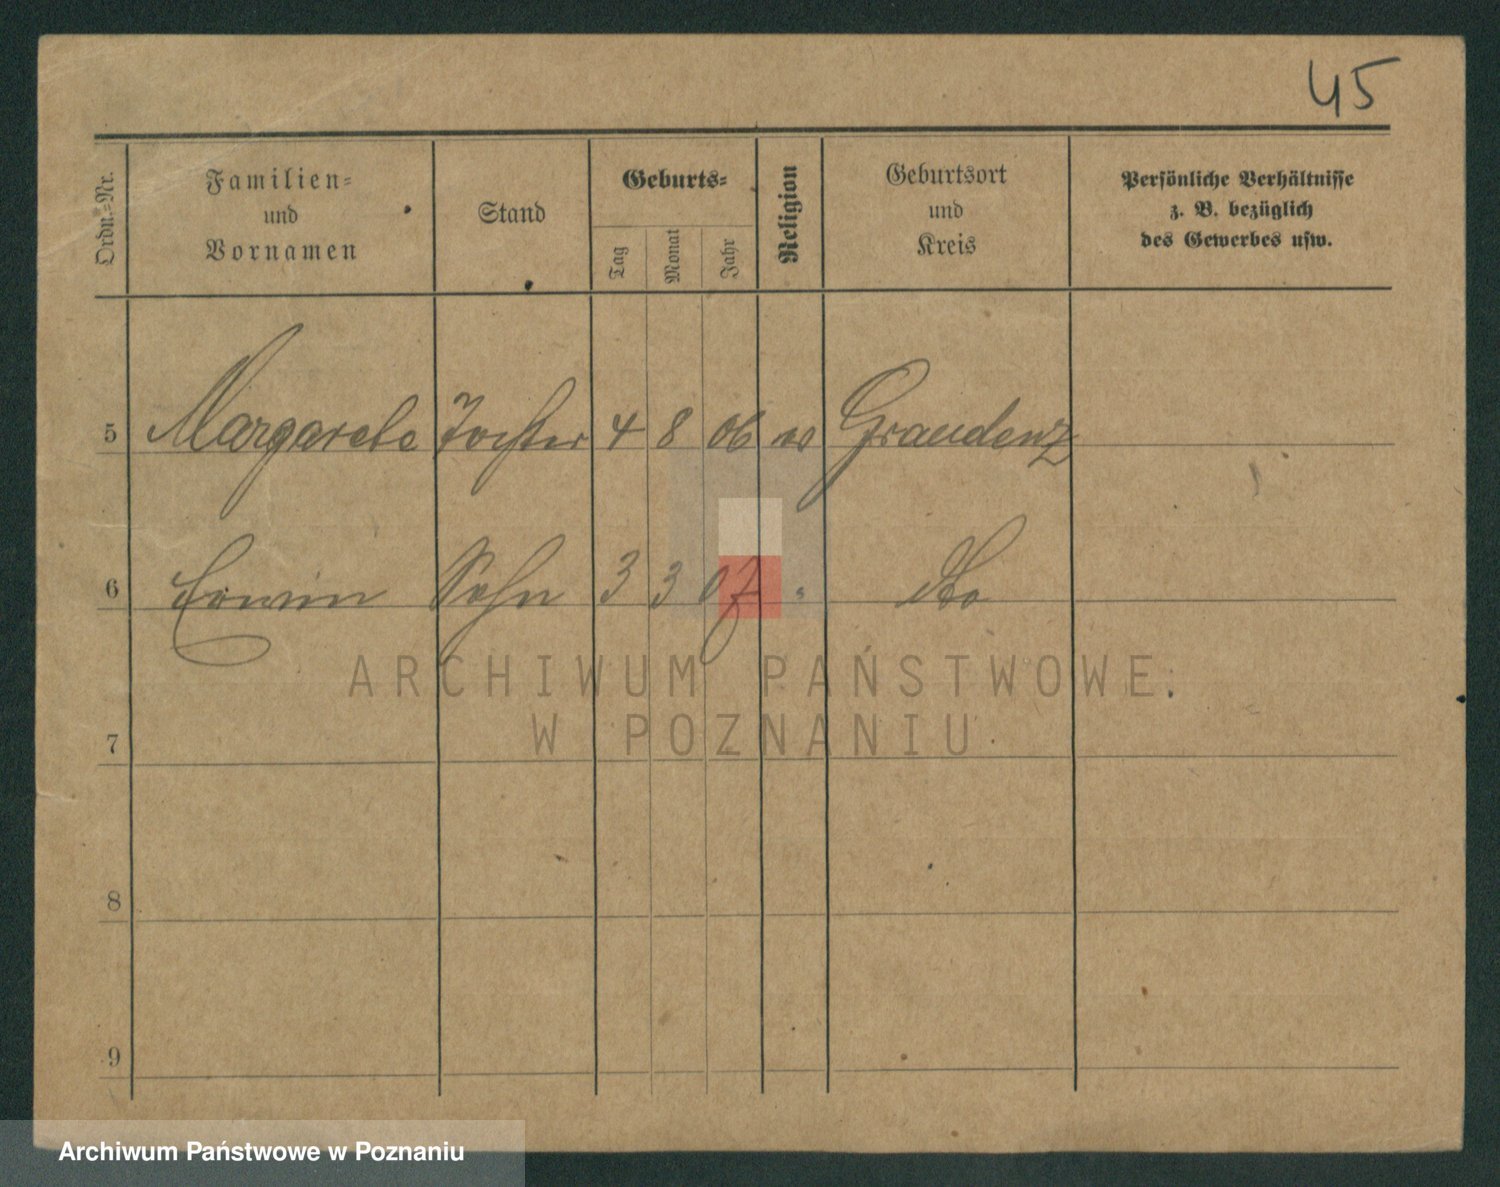 45
Ordn.-Nr.
Familien-
und
Vornamen
Stand
Geburts-
Tag
Monat
Jahr
Religion
Geburtsort
und
Kreis
Persönliche Verhältnisse
z. B. bezüglich
des Gewerbes usw.
5 Margarete Tochter 4 8 06 Graudenz
6 Erwin Sohn 3 3 07 " dto
ARCHIWUM PAŃSTWOWE
W POZNANIU
7
8
9
Archiwum Państwowe w Poznaniu